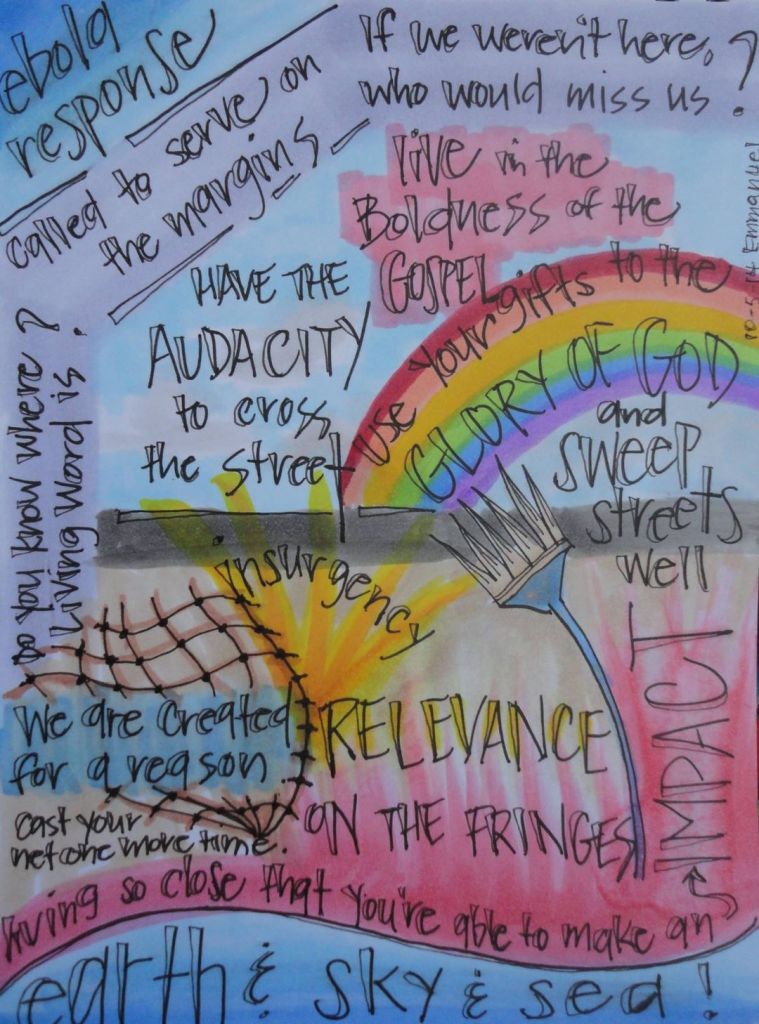 ebola
response
called to serve on
the margins
If we weren't here,
who would miss us?
live in the
Boldness of the
GOSPEL
10-5-14 Emmanuel
HAVE THE
AUDACITY
to cross
the street
use your gifts to the
GLORY OF GOD
and
sweep
streets
well
Do you know where?
Living Word is.
insurgency
We are created
for a reason
cast your
net one more time.
RELEVANCE
ON THE FRINGES
living so close that you're able to make an
IMPACT
earth & sky & sea!